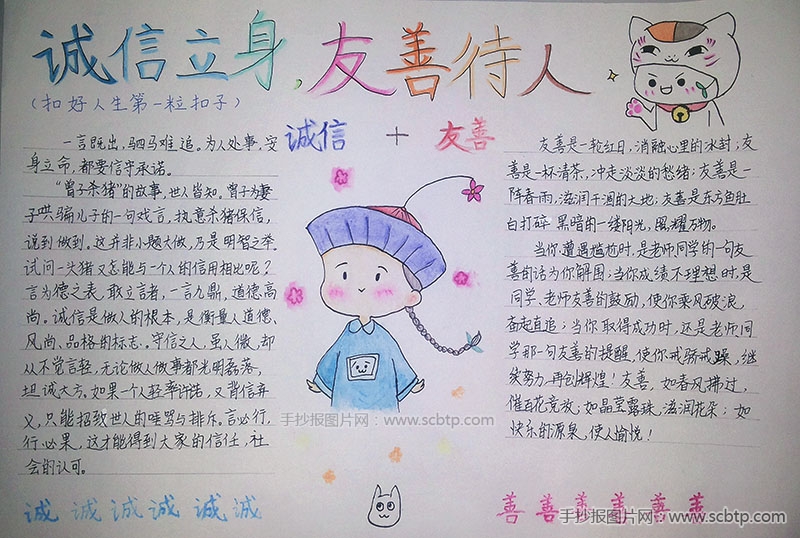 诚信立身，友善待人
（扣好人生第一粒扣子）
诚信 + 友善
一言既出，驷马难追。为人处事，安
身立命，都要信守承诺。
“曾子杀猪”的故事，世人皆知。曾子为妻
子哄骗儿子的一句戏言，执意杀猪保信，
说到做到。这并非小题大做，乃是明智之举。
试问一头猪又怎能与一个人的信用相比呢？
言为德之表，取立言者，一言九鼎，道德高
尚。诚信是做人的根本，是衡量人道德、
风尚、品格的标志。守信之人，虽人微，却
从不觉言轻，无论做人做事都光明磊落，
坦诚大方。如果一个人轻率许诺，又背信弃
义，只能招致世人的唾骂与排斥。言必行，
行必果，这才能得到大家的信任，社
会的认可。
友善是一轮红日，消融心里的冰封；友
善是一杯清茶，冲走淡淡的愁绪；友善是一
阵春雨，滋润干涸的大地；友善是东方鱼肚
白打碎黑暗的一缕阳光，照耀万物。
当你遭遇尴尬时，是老师同学的一句友
善的话为你解围；当你成绩不理想时，是
同学、老师友善的鼓励，使你乘风破浪，
奋起直追；当你取得成功时，还是老师同
学那一句友善的提醒，使你戒骄戒躁，继
续努力，再创辉煌！友善，如春风拂过，
催百花竞放；如晶莹露珠，滋润花朵；如
快乐的源泉，使人愉悦！
手抄报图片网：www.scbtp.com
诚 诚 诚 诚 诚 诚
善 善 善 善 善 善
手抄报图片网：www.scbtp.com